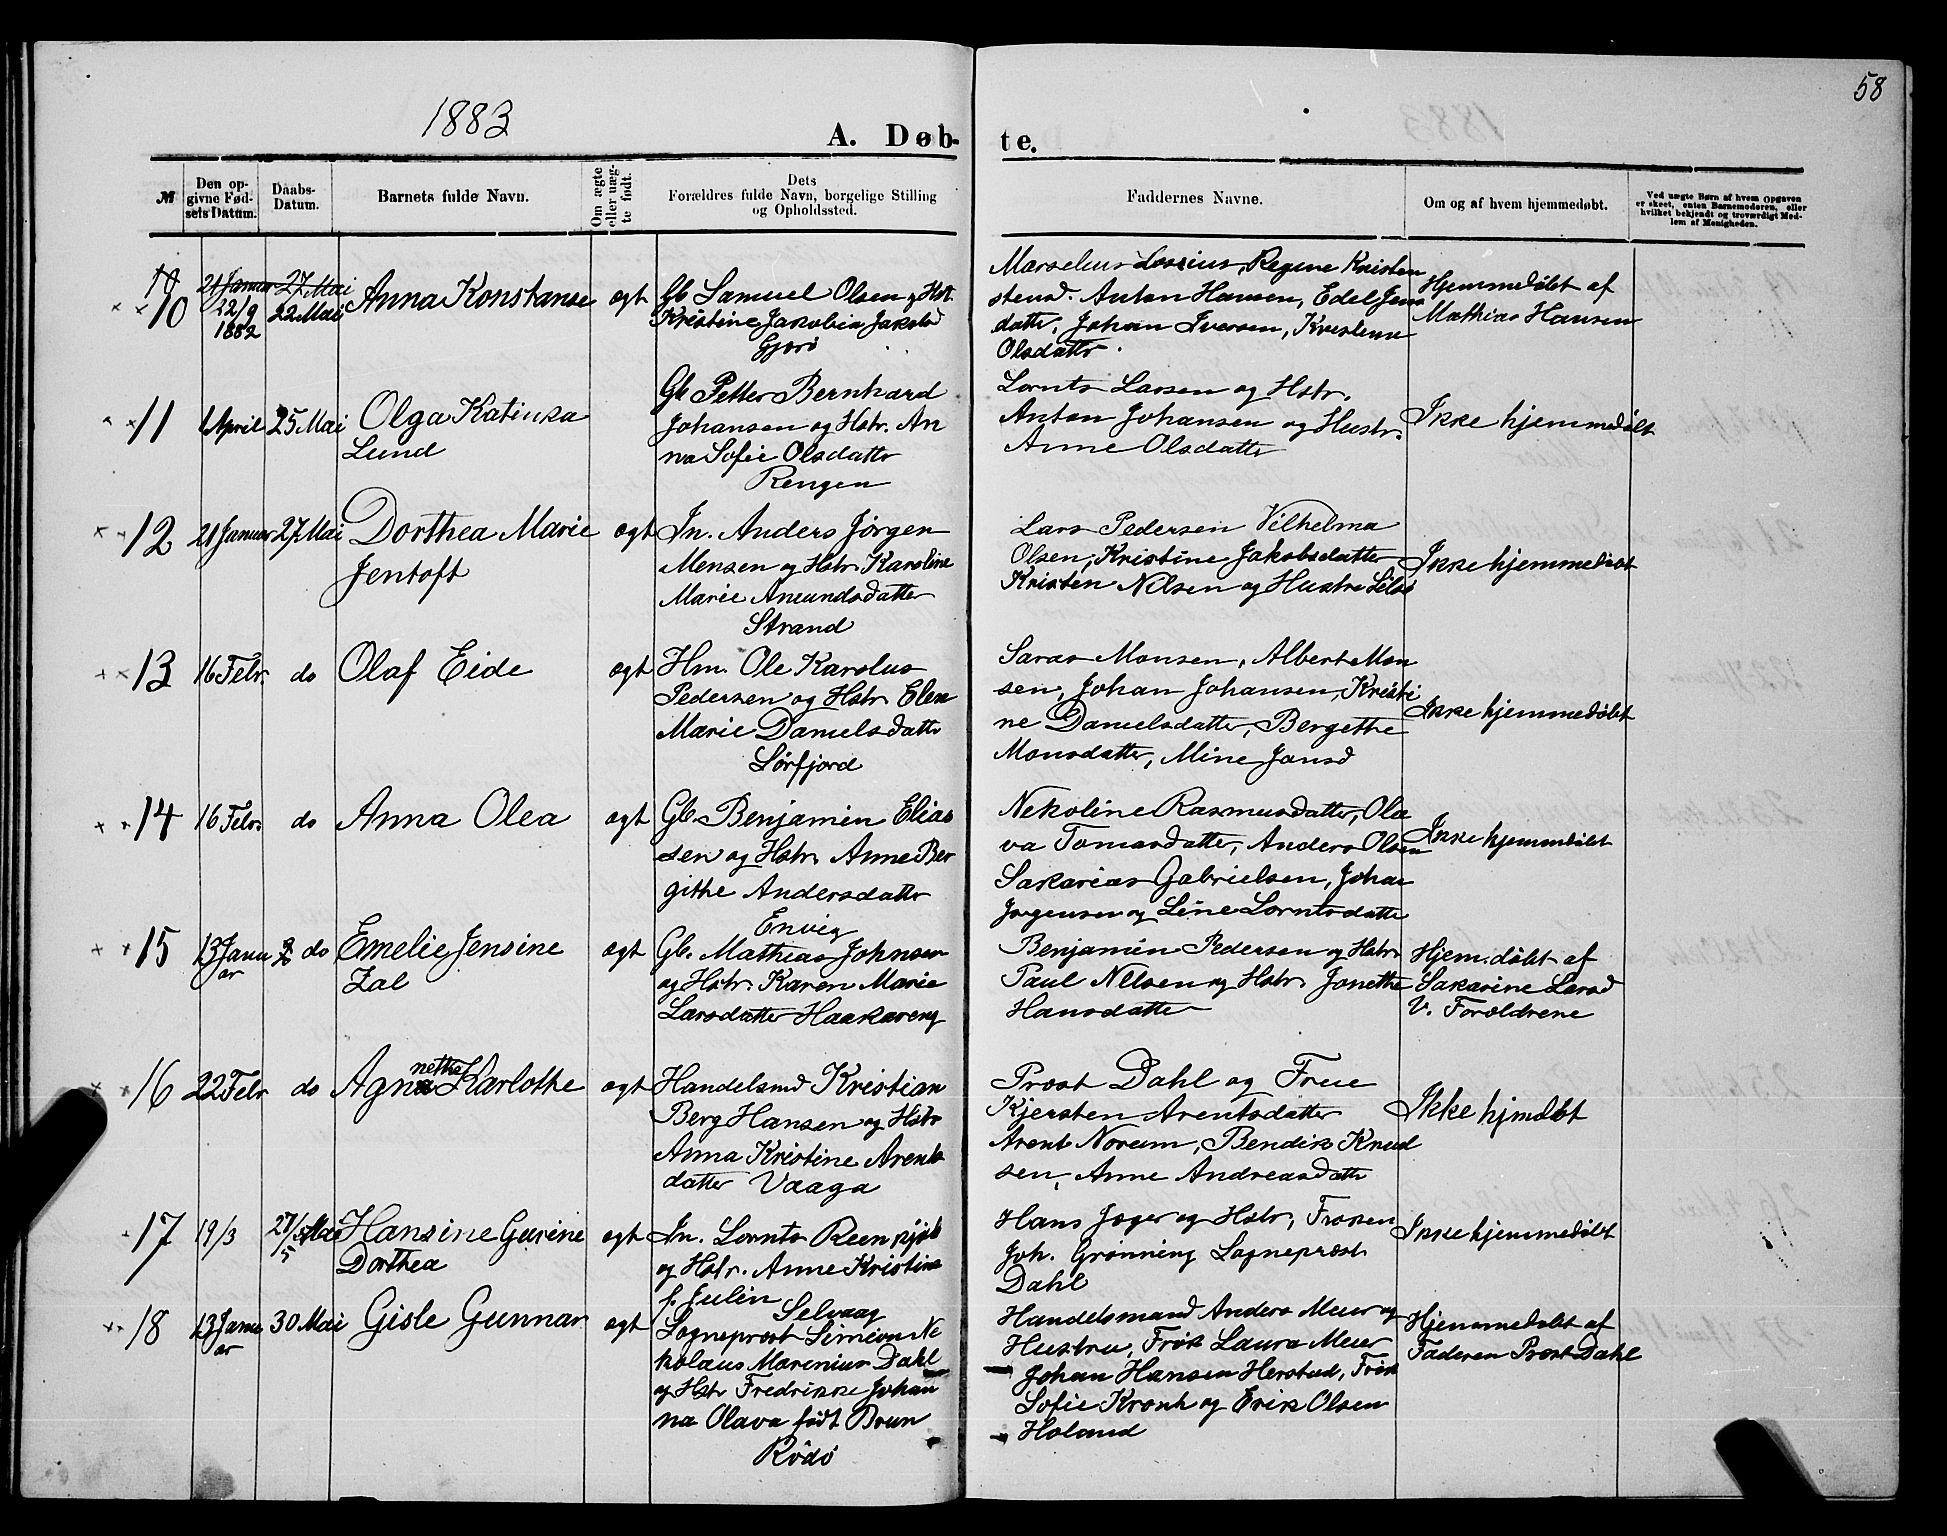 58
1883
A. Døb-
te.
№
Den op-
givne Fød-
sels Datum.
Daabs-
Datum.
Barnets fulde Navn.
Om ægte
eller uæg-
te født.
Dets
Forældres fulde Navn, borgelige Stilling
og Opholdssted.
Faddernes Navne.
Om og af hvem hjemmedøbt.
Ved uægte Børn af hvem Opgaven
er skeet, enten Barnemoderen, eller
hvilket bekjendt og troværdigt Med-
lem af Menigheden.
10
21 Januar
22/9
1882
27 Mai
22 Mai
Anna Konstanse
ægt
Gb Samuel Olsen og Hst.
Kristine Jakobia Jakobsd
Gjerö
Marselius Lossius, Regine Kristen
stensd. Anton Hansen, Edel Jens
datter, Johan Iversen, Kristine
Olsdatter.
Hjemmedøbt af
Mathias Hansen
11
1 April
25 Mai
Olga Katinka
Lund
Gb Petter Bernhard
Johansen og Hstr. An
na Sofie Olsdatter
Rengen
Lornts Larsen og Hstr.
Anton Johansen og Hustr.
Anne Olsdatter
Ikke hjemmedøbt
12
21 Januar
27 Mai
Dorthea Marie
Jentoft
ægt
In. Anders Jörgen
Mensen og Hstr. Karoline
Marie Amundsdatter
Strand
Lars Pedersen Vilhelma
Olsen, Kristine Jakobsdatter
Kristen Nilsen og Hustru Silse
Ikke hjemmedøbt
13
16 Febr.
do
Olaf Eide
ægt
Hm. Ole Karolus
Pedersen og Hstr. Elen
Marie Danielsdatter
Sörfjord
Saras Monsen, Albert Mon
sen, Johan Johansen, Kristi
ne Danielsdatter, Bergethe
Monsdatter, Mine Jansd
Ikke hjemmedøbt
14
16 Febr.
do
Anna Olea
ægt
Gb. Benjamin Elias
sen og Hstr. Anne Ber
githe Andersdatter
Envig
Nekoline Rasmusdatter, Ola
va Tomasdatter, Anders Olsen
Sakarias Gabrielsen, Johan
Jørgensen og Line Lorntsdatter
Ikke hjemmdøbt
15
13 Janu
ar
do
Emelie Jensine
Zal
ægt
Gb. Mathias Johnsen
og Hstr. Karen Marie
Larsdatter Haakareng
Benjamin Pedersen og Hstr.
Paul Nilsen og Hstr. Jonethe
Hansdatter
Hjem.døbt af
Sakarine Larsd
V. Forældrene
16
22 Febr
do
Agnethe Karlothe
ægt
Handelsmd Kristian
Berg Hansen og Hstr
Anna Kristine Arents
datter Vaaga
Prost Dahl og Frue
Kjersten Arentsdatter
Arent Norum, Bendik Knud
sen, Anne Andreasdatter
Ikke hjmdøbt
17
19/3
27/5 Mai
5
Hansine Gurine
Dorthea
ægt
In. Lornts Reenskjöl
og Hstr. Anne Kristine
f. Julin
Selvaag
Hans Jæger og Hstr, Frøken
Joh. Grønning Sogneprest
Dahl
Ikke hjemmedøbt
18
13 Janu
ar
30 Mai
Gisle Gunnar
ægt
Sogneprest Simion Ne
kolaus Marenius Dahl
og Hstr Fredrikke Johan
na Olava født Brun
Rödö
Handelsmand Anders Meier og
Hustru, Frök Laura Meier
Johan Hansen Herstad, Frök
Sofie Kronk og Erik Olsen
Holand
Hjemmedøbt af
Faderen Prost Dahl